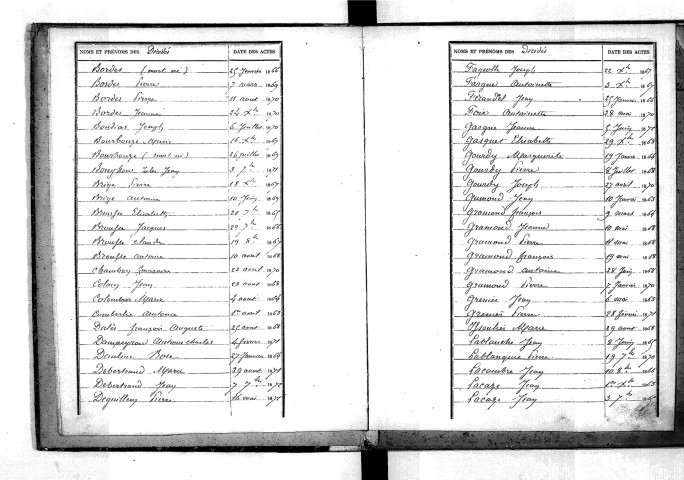 NOMS ET PRÉNOMS DES Décédés DATE DES ACTES
Bordes (mort né) 25 Janvier 1866
Bordes Pierre 7 mars 1869
Bordes Pierre 11 aout 1870
Bordes Jeanne 24 Xbre 1870
Boudias Joseph 6 Juillet 1870
Bourbouze Marie
Bourbouze (mort né) 26 Juillet 1869
Jean 3 7bre 1871
Brige Pierre 18 Xbre 1867
Brige Antoine 10 Juin 1869
Broufse Elisabeth
Broufse Jacques 22 7bre 1866
Broufse claude 19 8bre 1867
Broufse Antoine 10 aout 1868
Chambon francoise 20 avril 1870
Colom Jean 20 aout 1868
Colombier Marie 4 aout 1864
Antoine 1er avril 1863
Datés françois Auguste 25 aout 1868
Dampeyrou Antoine charles 4 février 1871
Dauline Rose 27 Janvier 1864
Debertrand Marie 29 avout 1871
Debertrand Jean 7 7bre 1872
Deguillem Pierre 16 mai 1871
NOMS ET PRÉNOMS DES Décédés DATE DES ACTES
Joseph 22 Xbre 1867
Fargue Antoinette 3 Xbre 1867
Jean 25 Janvier 1866
Foix Antoinette 28 mai 1870
Gasque Jeanne 5 Juin 1871
Gasquet Elisabeth 29 Xbre 1868
Gourdy Marguerite 19 Janvier 1864
Gourdy Pierre 8 Juillet 1868
Gourdy Joseph 27 avril 1870
Jean 10 Janvier 1863
Gramond françois 9 mars 1864
Gramond Jeanne 10 mai 1868
Gramond Pierre 11 mai 1868
Gramond françois 19 mai 1868
Gramond Antoine 28 Juin 1868
Gramond Pierre 7 Janvier 1870
Grenier Jean 6 mai 1863
Grenier Pierre 28 février 1871
Marie 29 aout 1868
Lablanche Jean 8 Juin 1865
Lablanque Pierre 19 7bre 1870
Lacambre Jean 10 8bre 1866
Lacaze Jean 1er Xbre 1863
Lacaze Jean 3 7bre